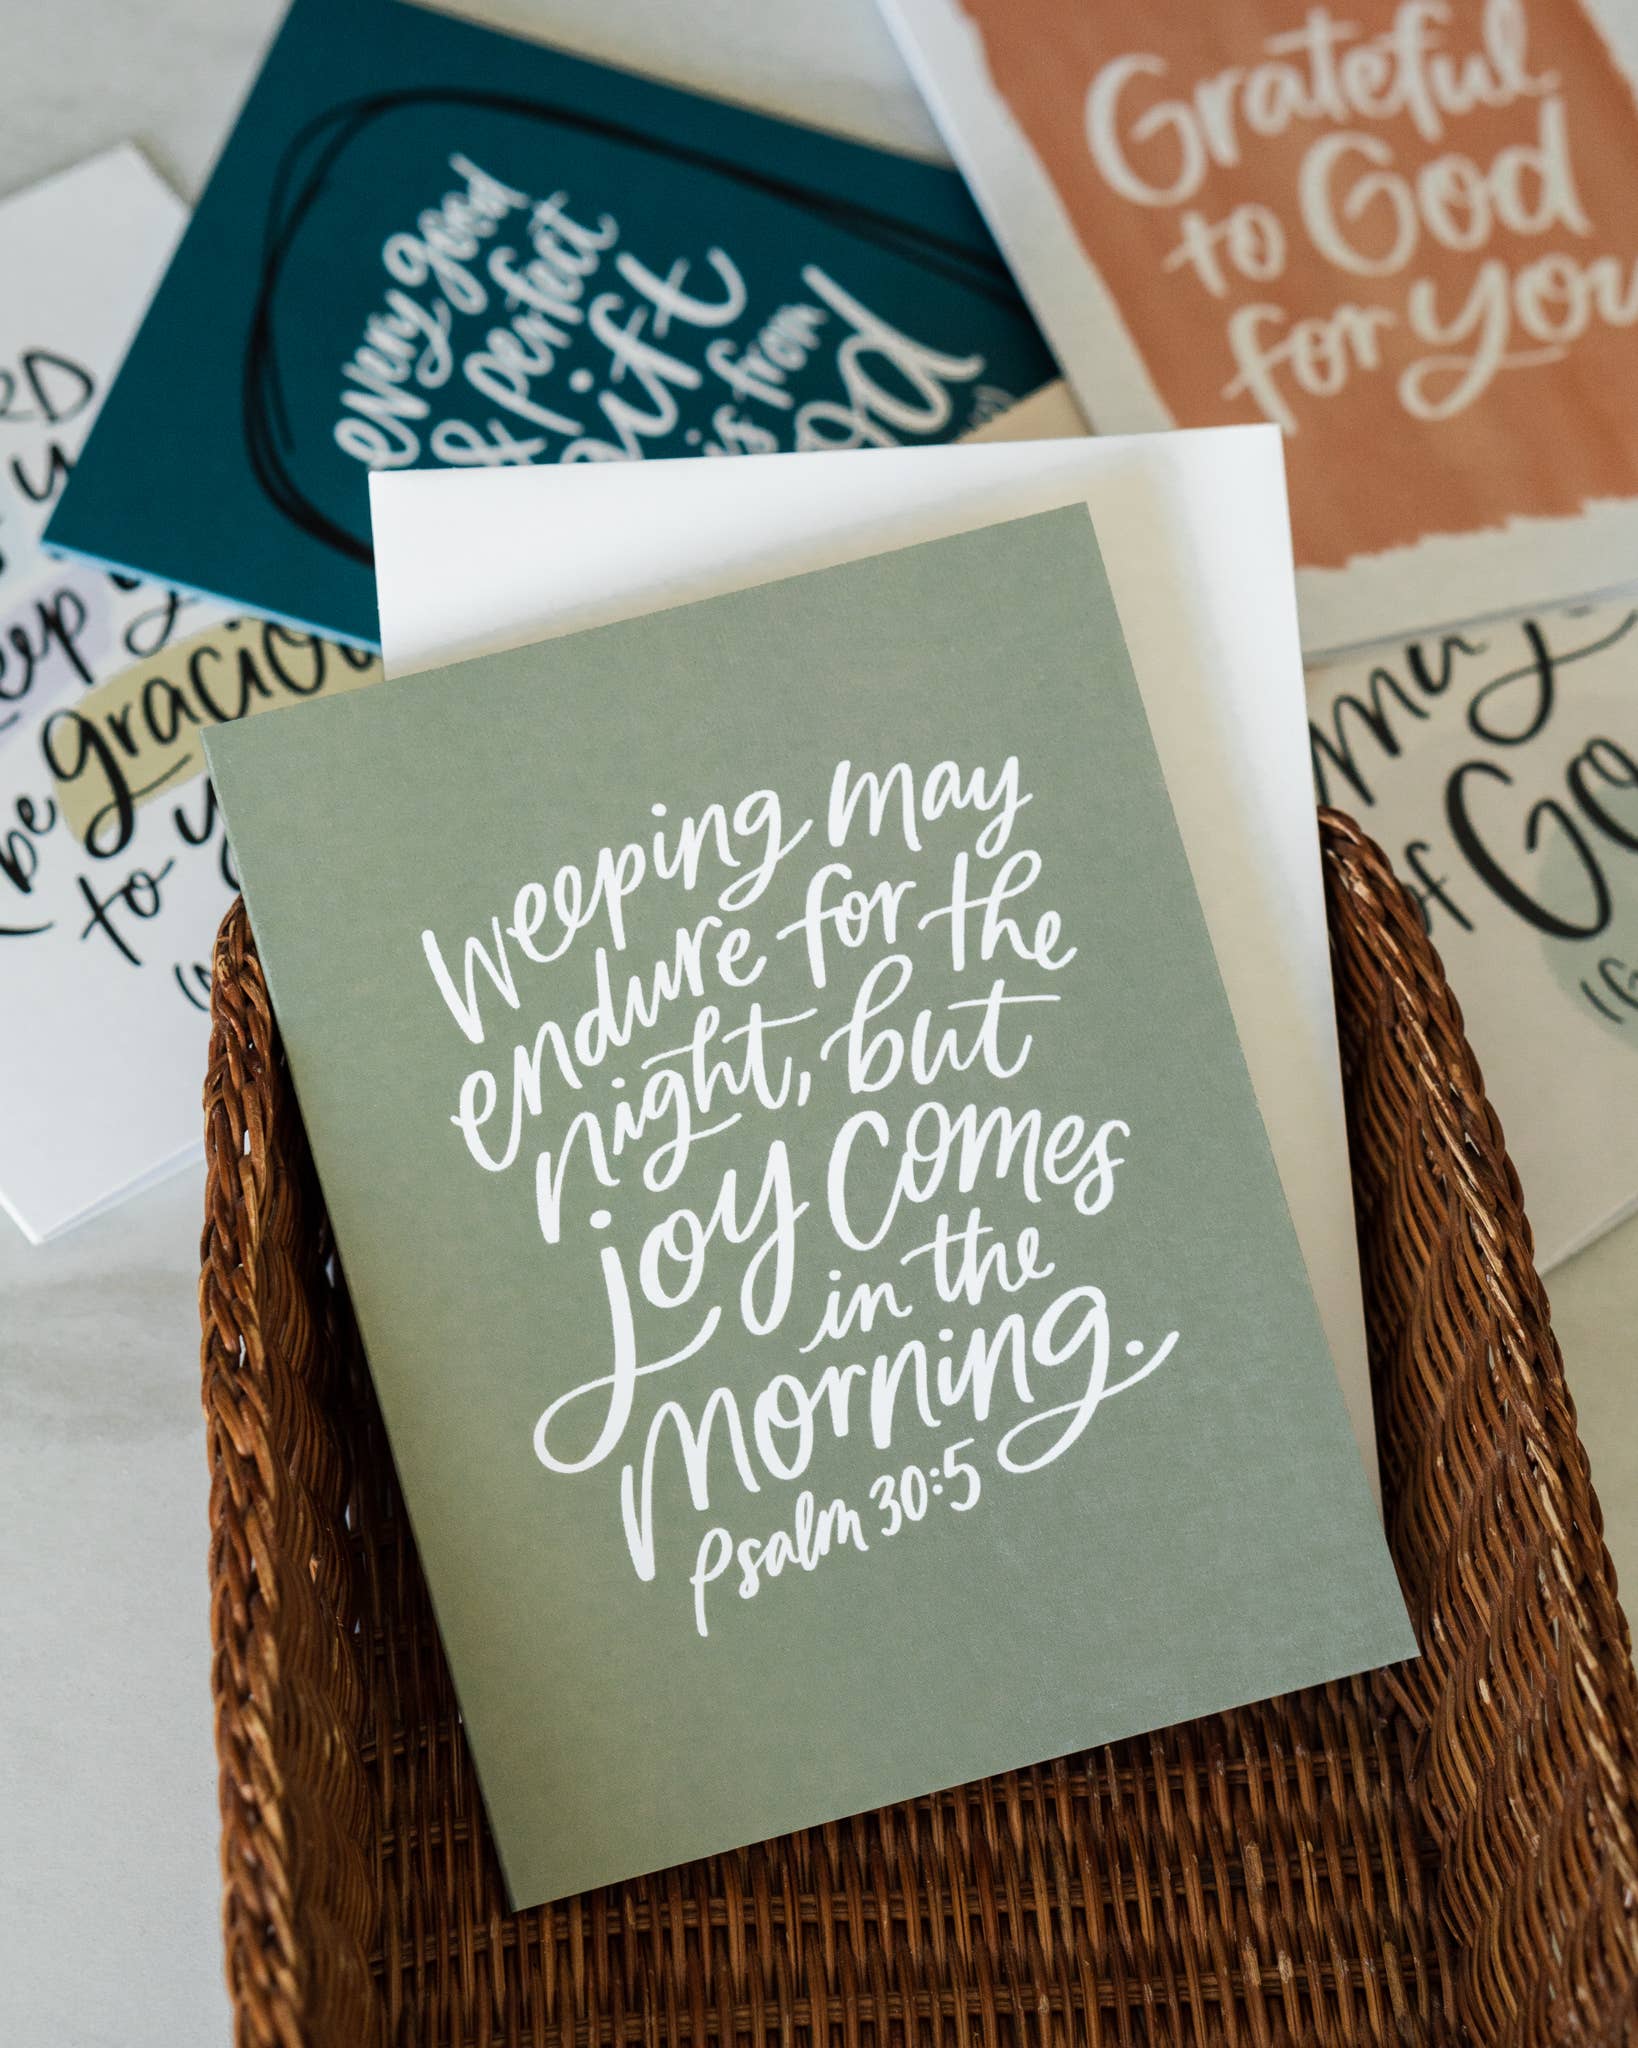 weeping may
endure for the
night, but
joy comes
in the
morning.
Psalm 30:5
every good
& perfect
gift
is from
Grateful
to God
for you
be gracious
to
my
of